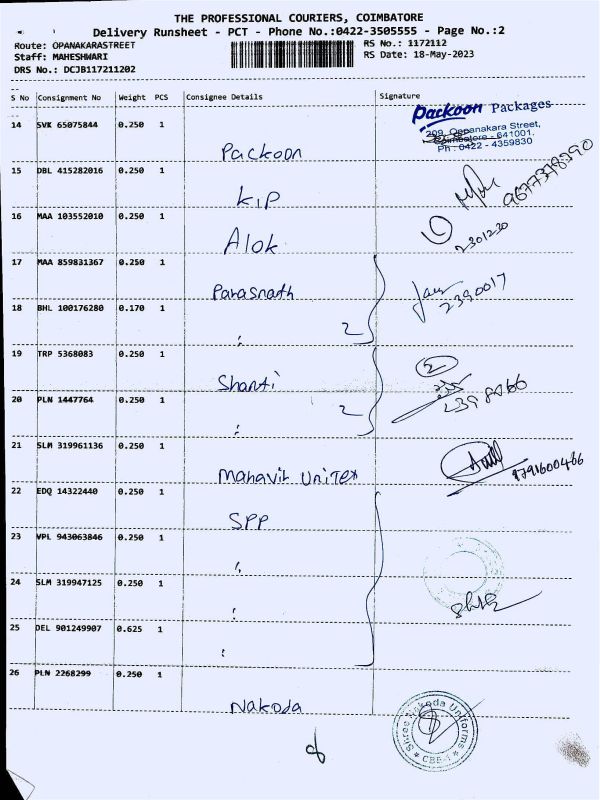 THE PROFESSIONAL COURIERS, COIMBATORE
Delivery Runsheet - PCT - Phone No.:0422-3505555 - Page No.:2
Route: OPANAKARASTREET
RS No.: 1172112
Staff: MAHESHWARI
RS Date: 18-May-2023
DRS No.: DCJB117211202
S No Consignment No Weight PCS Consignee Details Signature
14 SVK 65075844 0.250 1 Packoon
Packoon Packages
209, Oppanakara Street,
Coimbatore - 641001.
Ph : 0422 - 4359830
15 DBL 415282016 0.250 1 KIP 9677378390
16 MAA 103552010 0.250 1 Alok 2301230
17 MAA 859831367 0.250 1 Parasnath 2390017
18 BHL 100176280 0.170 1 : 2
19 TRP 5368083 0.250 1 Shanti 2
20 PLN 1447764 0.250 1 : 2
21 SLM 319961136 0.250 1 Mahavir Unitex 9791600466
22 EDQ 14322440 0.250 1 SPP
23 VPL 943063846 0.250 1
24 SLM 319947125 0.250 1 :
25 DEL 901249907 0.625 1 :
26 PLN 2268299 0.250 1 Nakoda
Shree Nakoda Uniforms